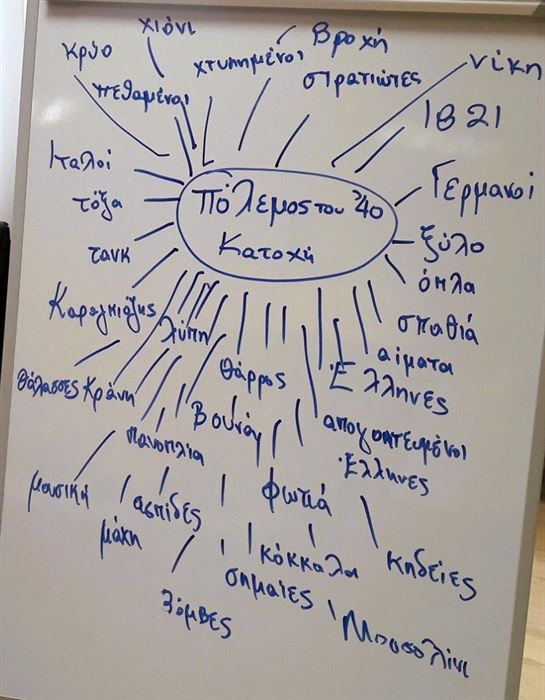 χιόνι
Βροχή
κρύο
χτυπημένοι
νίκη
πεθαμένοι
στρατιώτες
1821
Ιταλοί
Γερμανοί
τόξα
Πόλεμος του '40
Κατοχή
ξύλο
τανκ
όπλα
Καραγκιόζης
λύπη
σπαθιά
αίματα
θάρρος
Έλληνες
θάλασσες
Κράνη
Βουνά
απογοητευμένοι
Έλληνες
πανοπλία
μουσική
ασπίδες
φωτιά
μάχη
κόκκαλα
κηδείες
σημαίες
βόμβες
Μουσολίνι